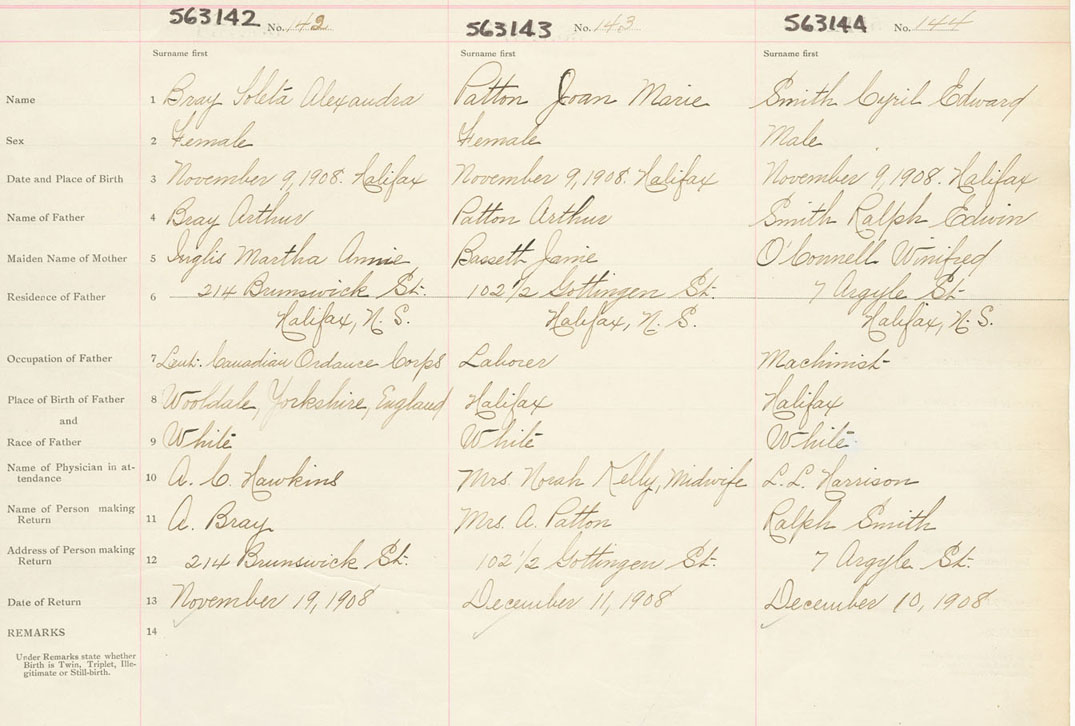 563142 No. 142 563143 No. 143 563144 No. 144
Surname first Surname first Surname first
Name 1 Bray Soleta Alexandra Patton Joan Marie Smith Cyril Edward
Sex 2 Female Female Male
Date and Place of Birth 3 November 9, 1908. Halifax November 9, 1908. Halifax November 9, 1908. Halifax
Name of Father 4 Bray Arthur Patton Arthur Smith Ralph Edwin
Maiden Name of Mother 5 Inglis Martha Annie Bassett Janie O'Connell Winifred
Residence of Father 6 214 Brunswick St. 102 1/2 Gottingen St. 7 Argyle St.
Halifax, N. S. Halifax, N. S. Halifax, N. S.
Occupation of Father 7 Lieut. Canadian Ordance Corps Laborer Machinist
Place of Birth of Father 8 Wooldale, Yorkshire, England Halifax Halifax
and
Race of Father 9 White White White
Name of Physician in at-
tendance 10 A. C. Hawkins Mrs. Norah Kelly, Midwife L. L. Harrison
Name of Person making
Return 11 A. Bray Mrs. A. Patton Ralph Smith
Address of Person making
Return 12 214 Brunswick St. 102 1/2 Gottingen St. 7 Argyle St.
Date of Return 13 November 19, 1908 December 11, 1908 December 10, 1908
REMARKS 14
Under Remarks state whether
Birth is Twin, Triplet, Ille-
gitimate or Still-birth.